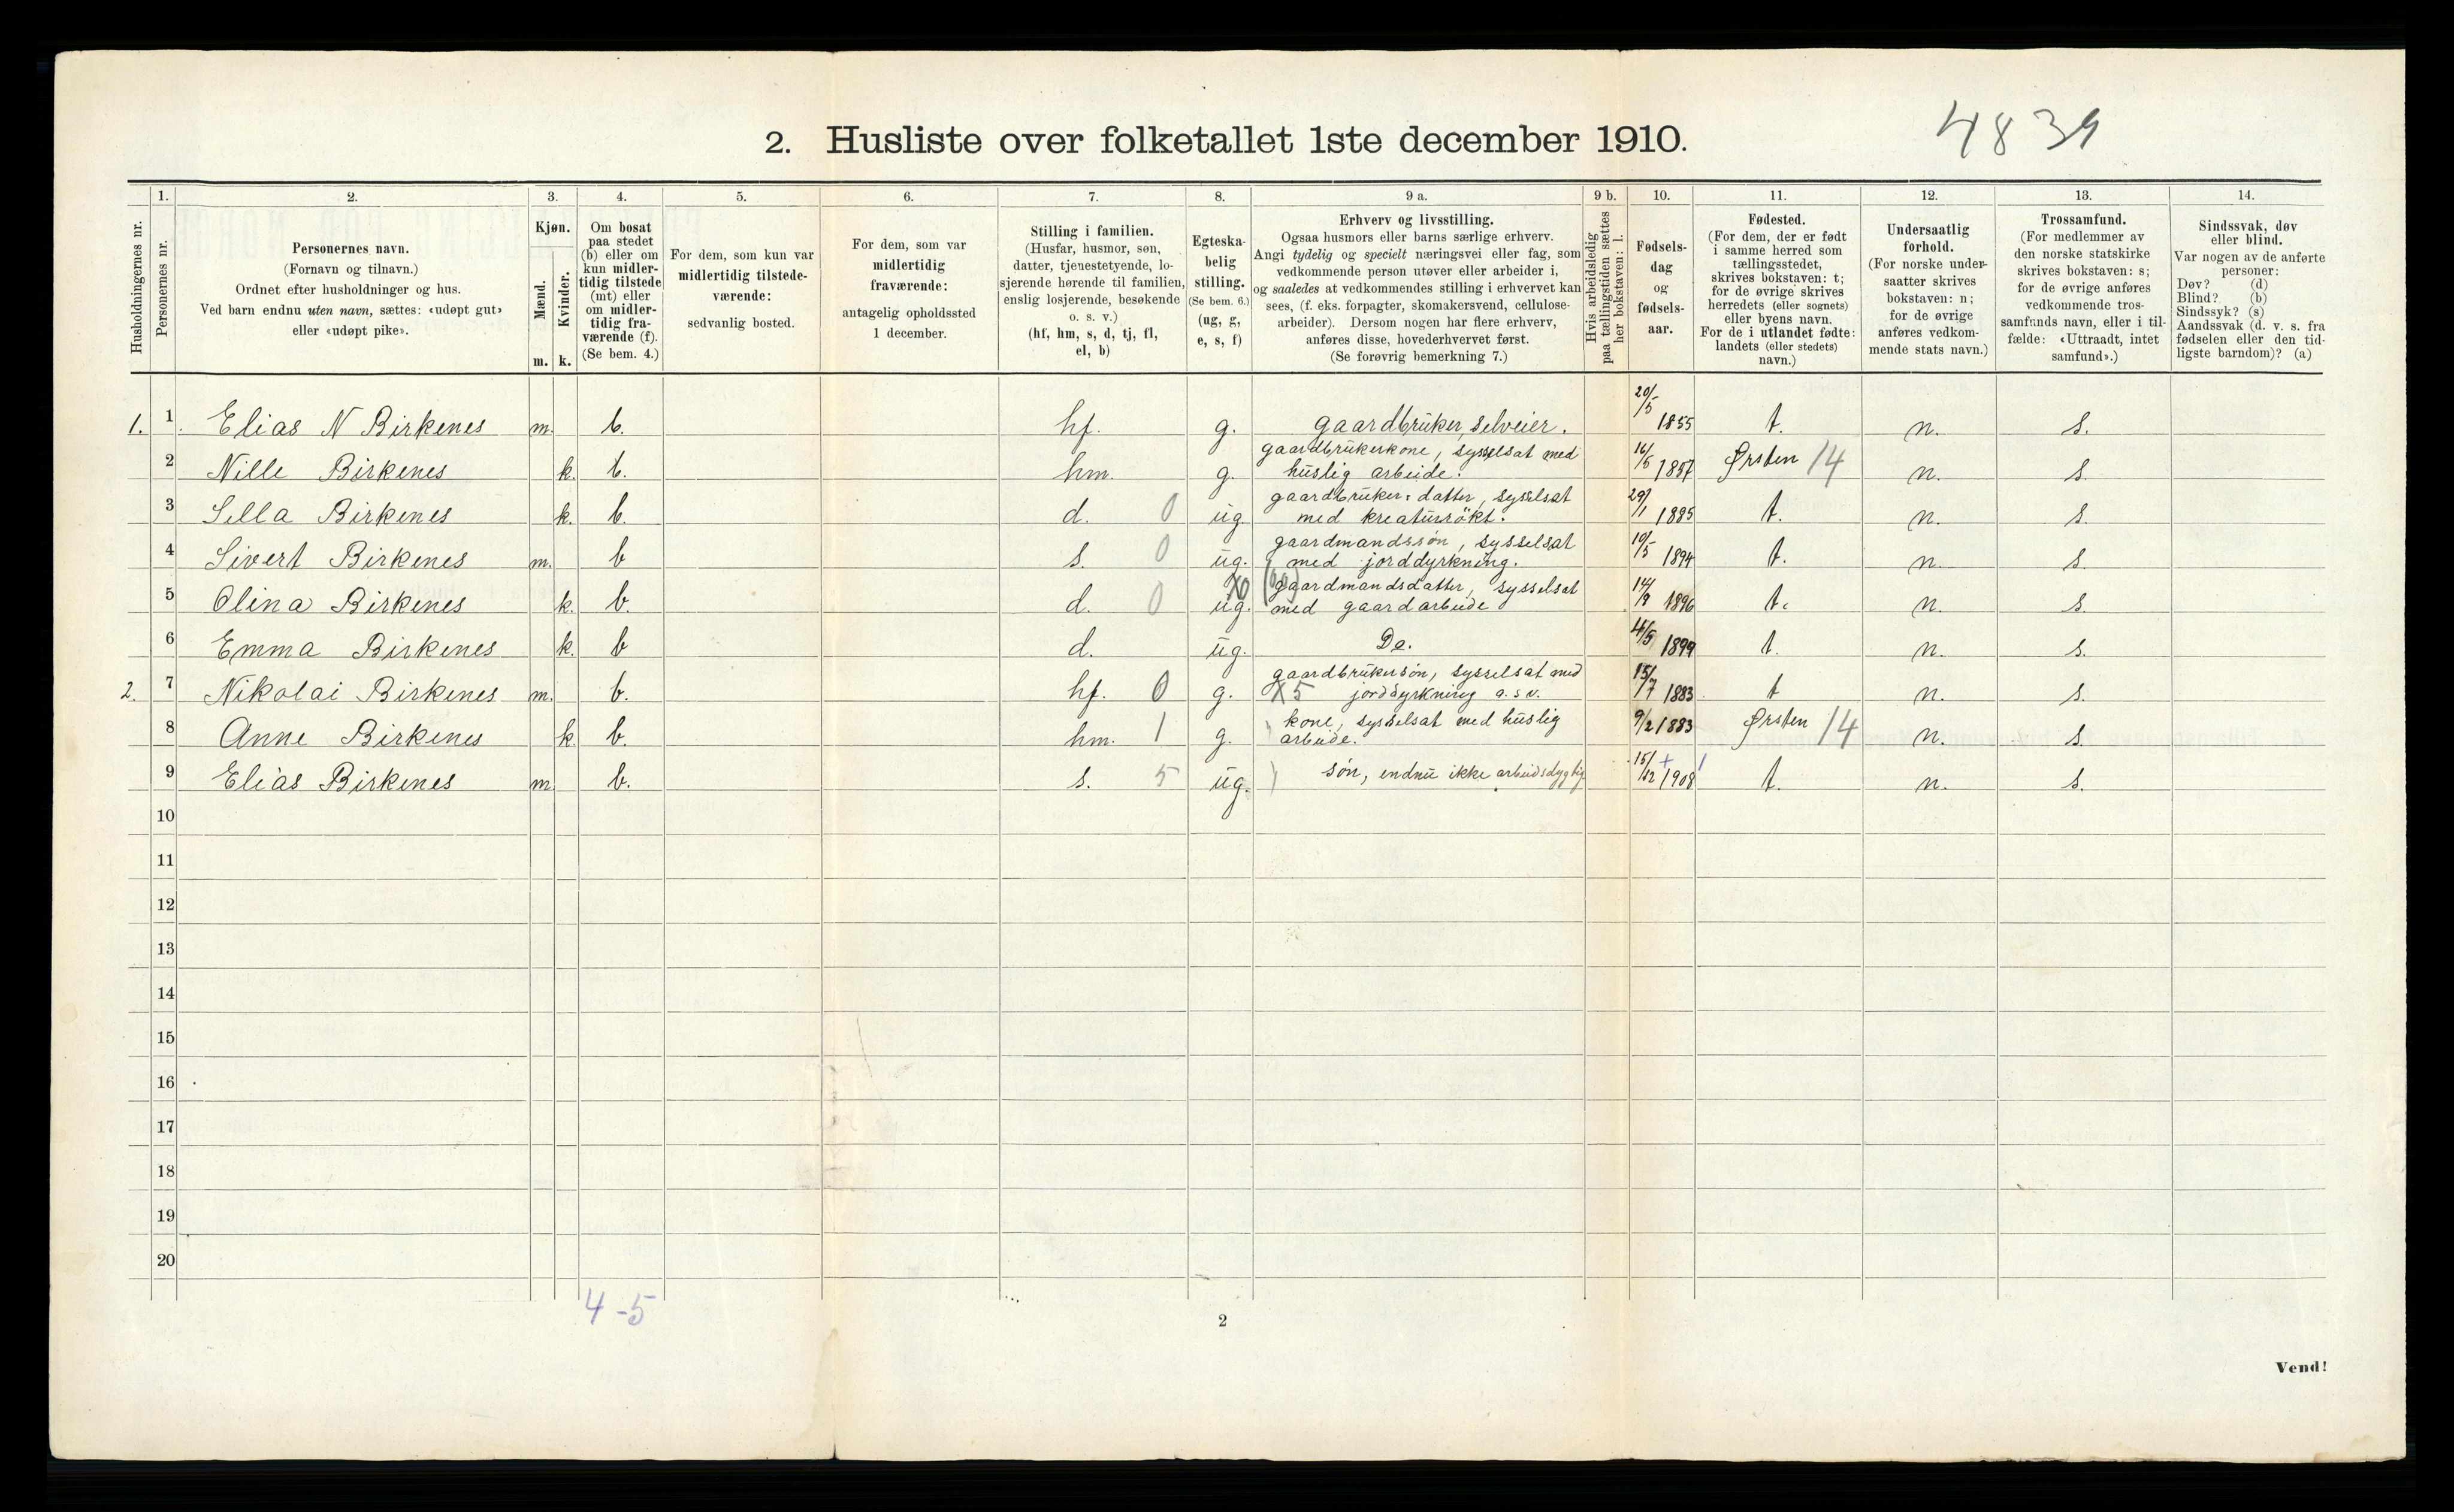 4839
2. Husliste over folketallet 1ste december 1910.
Husholdningernes nr.
1.
Personernes nr.
2.
Personernes navn.
(Fornavn og tilnavn.)
Ordnet efter husholdninger og hus.
Ved barn endnu uten navn, sættes: «udøpt gut»
eller «udøpt pike».
3.
Kjøn.
Mænd.
Kvinder.
m. k.
4.
Om bosat
paa stedet
(b) eller om
kun midler-
tidig tilstede
(mt) eller
om midler-
tidig fra-
værende (f).
(Se bem. 4.)
5.
For dem, som kun var
midlertidig tilstede-
værende:
sedvanlig bosted.
6.
For dem, som var
midlertidig
fraværende:
antagelig opholdssted
1 december.
7.
Stilling i familien.
(Husfar, husmor, søn,
datter, tjenestetyende, lo-
sjerende hørende til familien,
enslig losjerende, besøkende
o. s. v.)
(hf, hm, s, d, tj, fl,
el, b)
8.
Egteska-
belig
stilling.
(Se bem. 6.)
(ug, g,
e, s, f)
9 a.
Erhverv og livsstilling.
Ogsaa husmors eller barns særlige erhverv.
Angi tydelig og specielt næringsvei eller fag, som
vedkommende person utøver eller arbeider i,
og saaledes at vedkommendes stilling i erhvervet kan
sees, (f. eks. forpagter, skomakersvend, cellulose-
arbeider). Dersom nogen har flere erhverv,
anføres disse, hovederhvervet først.
(Se forøvrig bemerkning 7.)
9 b.
Hvis arbeidsledig
paa tællingstiden sættes
her bokstaven: l.
10.
Fødsels-
dag
og
fødsels-
aar.
11.
Fødested.
(For dem, der er født
i samme herred som
tællingsstedet,
skrives bokstaven: t;
for de øvrige skrives
herredets (eller sognets)
eller byens navn.
For de i utlandet fødte:
landets (eller stedets)
navn.)
12.
Undersaatlig
forhold.
(For norske under-
saatter skrives
bokstaven: n;
for de øvrige
anføres vedkom-
mende stats navn.)
13.
Trossamfund.
(For medlemmer av
den norske statskirke
skrives bokstaven: s;
for de øvrige anføres
vedkommende tros-
samfunds navn, eller i til-
fælde: «Uttraadt, intet
samfund».)
14.
Sindssvak, døv
eller blind.
Var nogen av de anførte
personer:
Døv? (d)
Blind? (b)
Sindssyk? (s)
Aandssvak (d. v. s. fra
fødselen eller den tid-
ligste barndom)? (a)
1. 1 Elias N Birkenes m. b. hf. g. gaardbruker, selveier. 20/5 1855 t. n. s.
2 Nille Birkenes k. b. hm. g. gaardbrukerkone, sysselsat med
huslig arbeide. 16/5 1857 Ørsten 14 n. s.
3 Sella Birkenes k. b. d. 0 ug. gaardbruker: datter, sysselsat
med kreaturrökt. 29/1 1885 t. n. s.
4 Sivert Birkenes m. b s. 0 ug. gaardmandssøn, sysselsat
med jorddyrkning. 10/5 1894 t. n. s.
5 Olina Birkenes k. b. d. 0 ug. gaardmandsdatter, sysselsat
med gaardarbeide 1896 t. n. s.
6 Emma Birkenes k. b d. ug. Do. 4/5 1899 t. n. s.
2. 7 Nikolai Birkenes m. b. hf. 0 g. gaardbrukersøn, sysselsat med
X5 jorddyrkning o.s.v. 15/7 1883 t n. s.
8 Anne Birkenes k b. hm. 1 g. kone, sysselsat med huslig
arbeide. 9/2 1883 Ørsten 14 n. s.
9 Elias Birkenes m. b. s. 5 ug. søn, endnu ikke arbeidsdygtig 15/12 1908 t. n. s.
10
11
12
13
14
15
16
17
18
19
20
4-5
2
Vend!